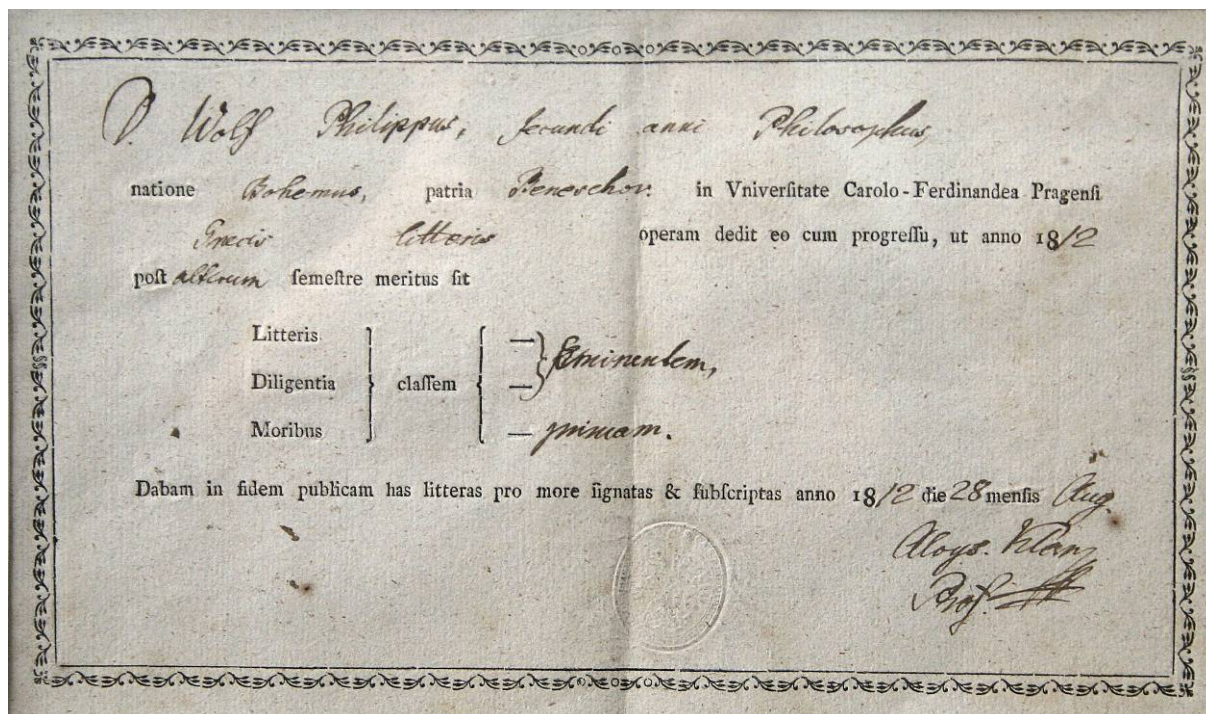 D. Wolf Philippus, secundi anni Philosophus,
natione Bohemus, patria Beneschov. in Vniverſitate Carolo-Ferdinandea Pragenſi
Graecis litteris operam dedit eo cum progreſſu, ut anno 1812
poſt alterum ſemeſtre meritus ſit
Litteris
Diligentia } claſſem { — } Eminentem,
Moribus — primam.
Dabam in fidem publicam has litteras pro more ſignatas & ſubſcriptas anno 1812 die 28 menſis Aug.
Aloys. Klar
Prof.